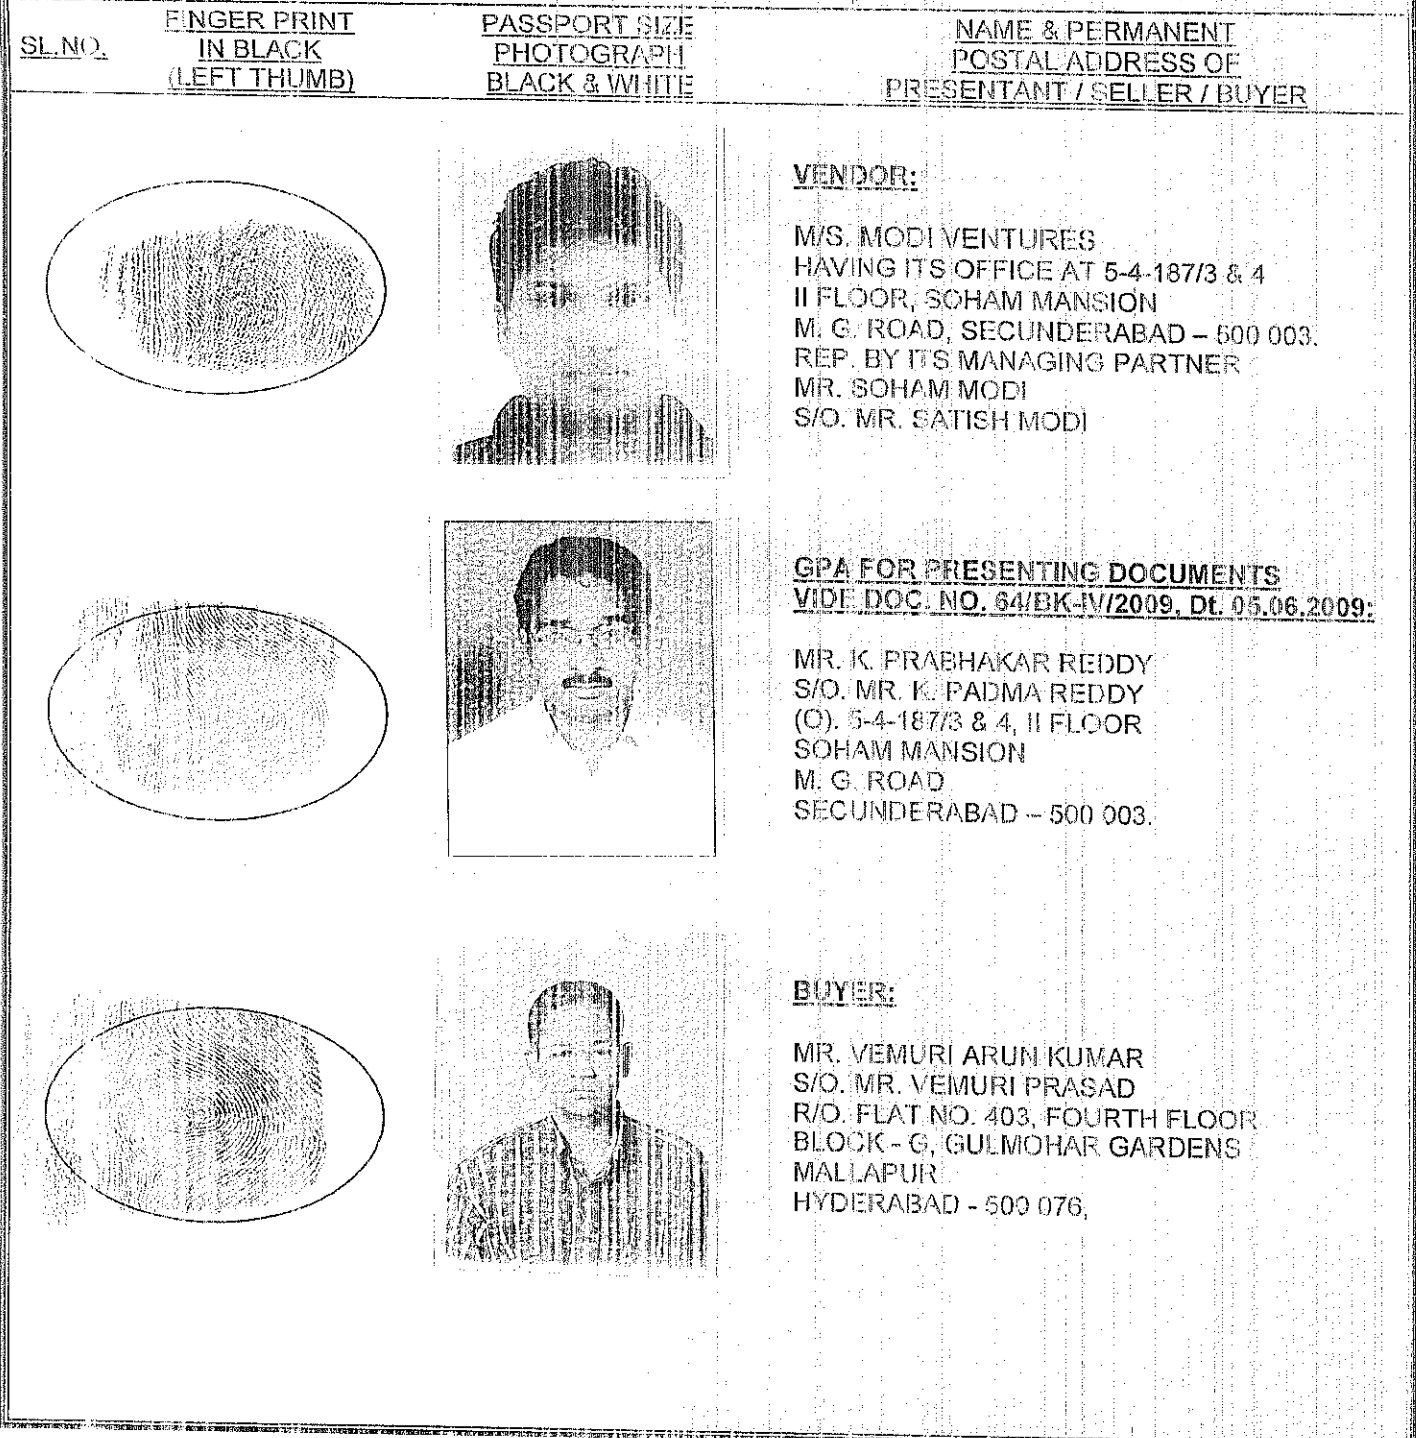 SL.NO.
FINGER PRINT
IN BLACK
(LEFT THUMB)
PASSPORT SIZE
PHOTOGRAPH
BLACK & WHITE
NAME & PERMANENT
POSTAL ADDRESS OF
PRESENTANT / SELLER / BUYER
VENDOR:
M/S. MODI VENTURES
HAVING ITS OFFICE AT 5-4-187/3 & 4
II FLOOR, SOHAM MANSION
M. G. ROAD, SECUNDERABAD – 500 003.
REP. BY ITS MANAGING PARTNER
MR. SOHAM MODI
S/O. MR. SATISH MODI
GPA FOR PRESENTING DOCUMENTS
VIDE DOC. NO. 64/BK-IV/2009, Dt. 05.06.2009:
MR. K. PRABHAKAR REDDY
S/O. MR. K. PADMA REDDY
(O). 5-4-187/3 & 4, II FLOOR
SOHAM MANSION
M. G. ROAD
SECUNDERABAD – 500 003.
BUYER:
MR. VEMURI ARUN KUMAR
S/O. MR. VEMURI PRASAD
R/O. FLAT NO. 403, FOURTH FLOOR
BLOCK - G, GULMOHAR GARDENS
MALLAPUR
HYDERABAD - 500 076.